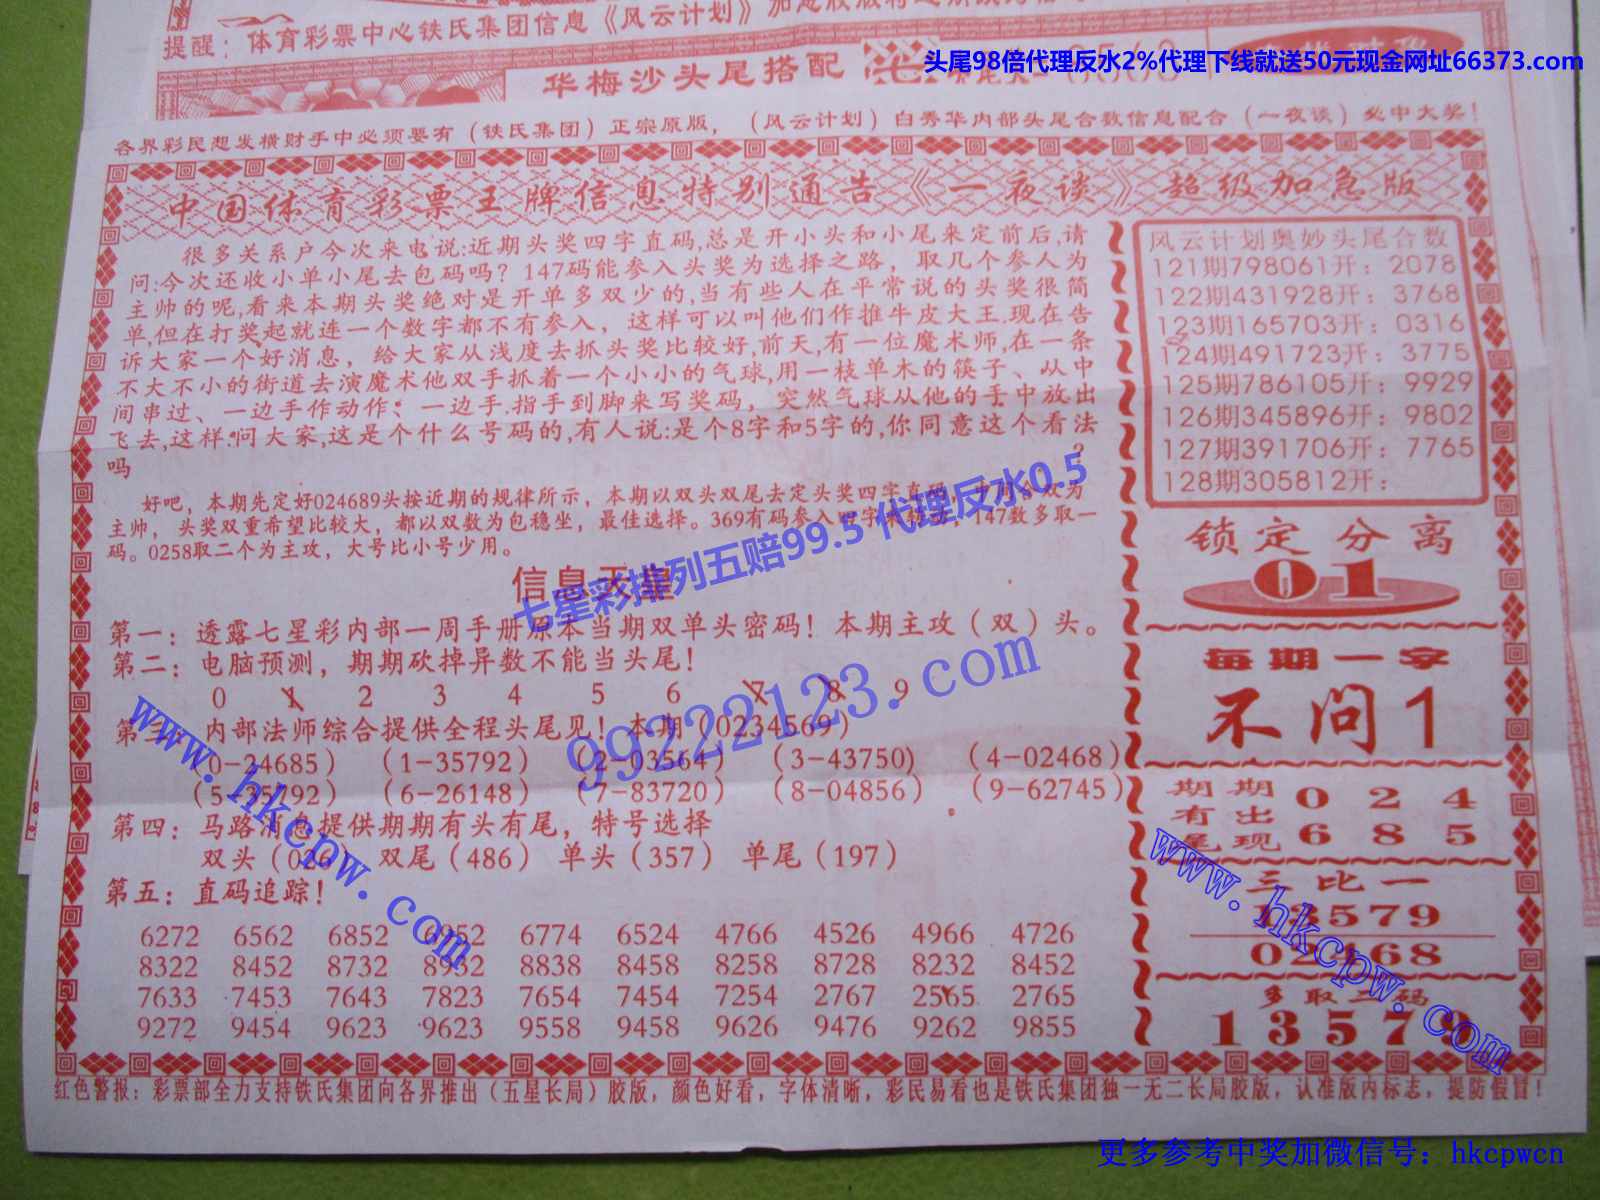 提醒：体育彩票中心铁氏集团信息《风云计划》
头尾98倍代理反水2%代理下线就送50元现金网址66373.com
华梅沙头尾搭配
各界彩民想发横财手中必须要有（铁氏集团）正宗原版，（风云计划）白秀华内部头尾合数信息配合（一夜谈）必中大奖！
中国体育彩票王牌信息特别通告《一夜谈》超级加急版
很多关系户今次来电说:近期头奖四字直码,总是开小头和小尾来定前后,请
问:今次还收小单小尾去包码吗？147码能参入头奖为选择之路，取几个参人为
主帅的呢,看来本期头奖绝对是开单多双少的,当有些人在平常说的头奖很简
单,但在打奖起就连一个数字都不有参入，这样可以叫他们作推牛皮大王.现在告
诉大家一个好消息，给大家从浅度去抓头奖比较好,前天,有一位魔术师,在一条
不大不小的街道去演魔术他双手抓着一个小小的气球,用一枝单木的筷子、从中
间串过、一边手作动作；一边手.指手到脚来写奖码，突然气球从他的手中放出
飞去,这样:问大家,这是个什么号码的,有人说:是个8字和5字的,你同意这个看法
吗？
好吧，本期先定好024689头按近期的规律所示，本期以双头双尾去定头奖四字直码，中间合双为
主帅，头奖双重希望比较大，都以双数为包稳坐，最佳选择。369有码参入四字来转头，147数多取一
码。0258取二个为主攻，大号比小号少用。
七星彩排列五赔99.5 代理反水0.5
信息天皇
第一：透露七星彩内部一周手册原本当期双单头密码！本期主攻（双）头。
第二：电脑预测，期期砍掉异数不能当头尾！
0 1 2 3 4 5 6 7 8 9
第三：内部法师综合提供全程头尾见！本期（0234569）
（0-24685） （1-35792） （2-03564） （3-43750） （4-02468）
（5-35792） （6-26148） （7-83720） （8-04856） （9-62745）
99222123.com
第四：马路消息提供期期有头有尾，特号选择
双头（026） 双尾（486） 单头（357） 单尾（197）
第五：直码追踪！
6272 6562 6852 6952 6774 6524 4766 4526 4966 4726
8322 8452 8732 8932 8838 8458 8258 8728 8232 8452
7633 7453 7643 7823 7654 7454 7254 2767 2565 2765
9272 9454 9623 9623 9558 9458 9626 9476 9262 9855
www.hkcpw.com
风云计划奥妙头尾合数
121期798061开：2078
122期431928开：3768
123期165703开：0316
124期491723开：3775
125期786105开：9929
126期345896开：9802
127期391706开：7765
128期305812开：
锁定分离
01
每期一字
不问1
期期 0 2 4
有出
尾现 6 8 5
三比一
13579
02468
多取二码
13579
www.hkcpw.com
红色警报：彩票部全力支持铁氏集团向各界推出（五星长局）胶版，颜色好看，字体清晰，彩民易看也是铁氏集团独一无二长局胶版，认准版内标志，提防假冒！
更多参考中奖加微信号：hkcpwcn